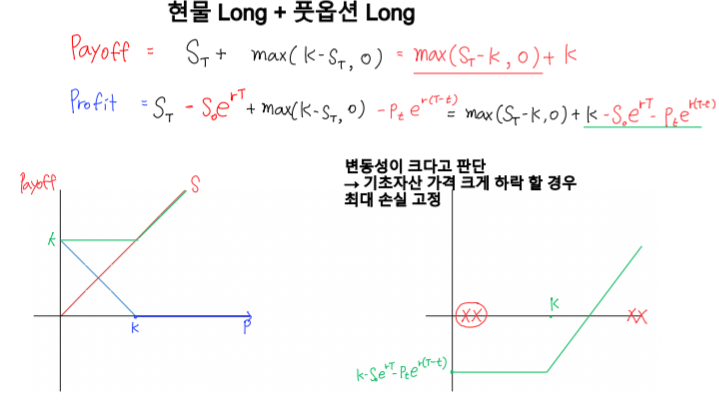 현물 Long + 풋옵션 Long
Payoff = S_T + max(K-S_T, 0) = max(S_T-K, 0) + K
Profit = S_T - S_0e^{rT} + max(K-S_T, 0) - P_te^{r(T-t)} = max(S_T-K, 0) + K - S_0e^{rT} - P_te^{r(T-t)}
변동성이 크다고 판단
→ 기초자산 가격 크게 하락 할 경우
최대 손실 고정
Payoff
S
K
K
P
K
XX
XX
K-S_0e^{rT}-P_te^{r(T-t)}